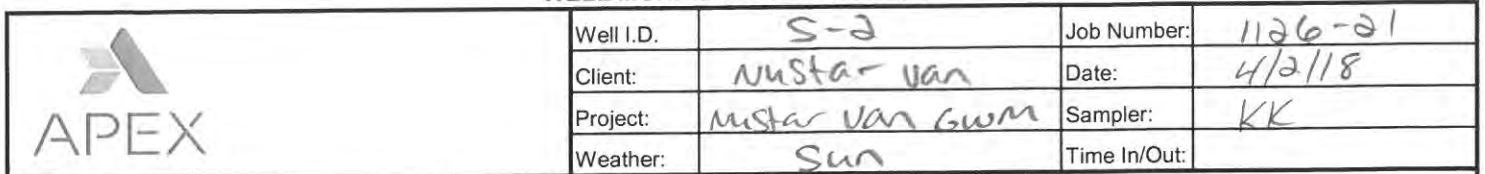 APEX
Well I.D. S-2 Job Number: 1126-21
Client: NuStar Van Date: 4/2/18
Project: NuStar Van GWM Sampler: KK
Weather: Sun Time In/Out: